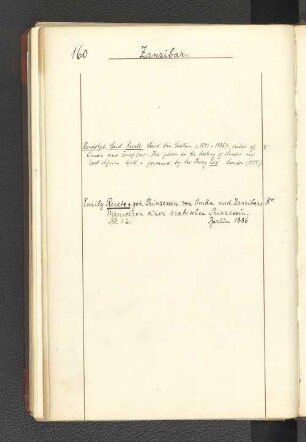 160 Zanzibar.
Rudolph Said-Ruete Said bin Sultan (1791-1856), ruler of 8
Oman and Zanzibar. His place in the history of Arabia and
East Africa. With a foreword by the Percy Cox London (1929).
Emily Ruete, geb. Prinzessin von Omân und Zanzibar. 8°
Memoiren einer arabischen Prinzessin.
Bd. 1.2. Berlin 1886